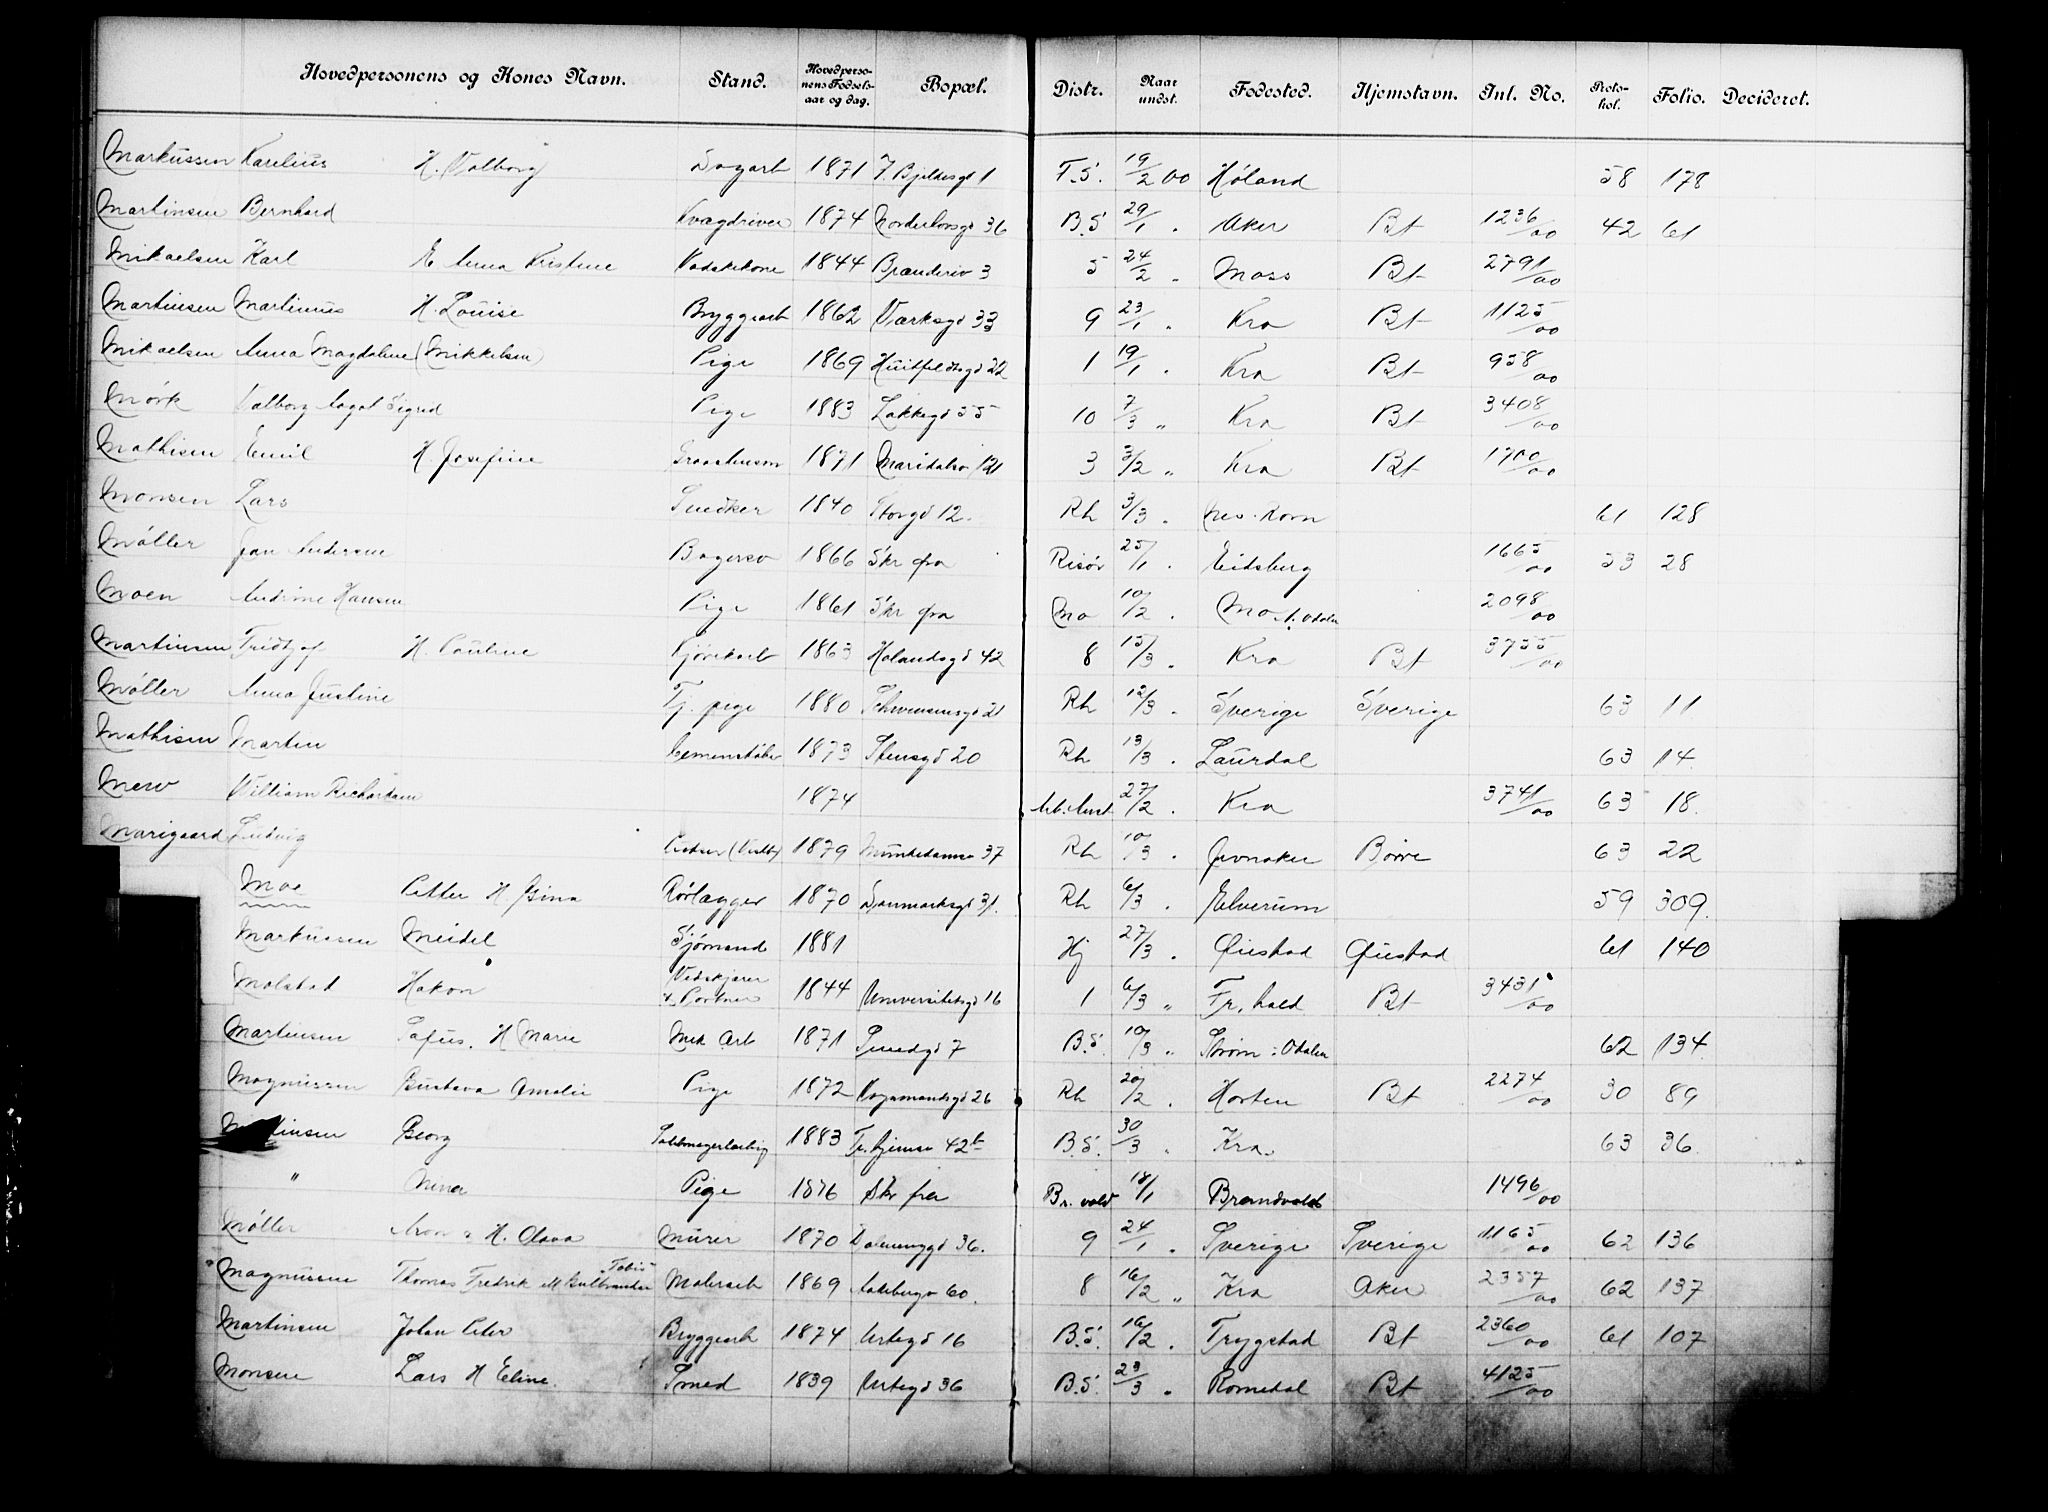 Hovedpersonens og Kones Navn. Stand. Hovedperso-nens Fødsels-aar og dag. Bopæl. Distr. Naar undst. Fødested. Hjemstavn. Inl. No. Proto-kol. Folio. Decideret.
Markussen Karelius H. Valborg Dagarb 1871 J. Bjeldesgd 1 F.S. 19/2 00 Høland 58 178
Martinsen Bernhard Kvægdriver 1874 Norderhovsgd 36 B.S 29/1 . Aker Bt 1236/00 42 61
Mikaelsen Karl E Anna Kristine Vadskekone 1844 Brænderiv 3 5 24/2 „ Moss Bt 2791/00
Martinsen Martinius H. Louise Bryggearb 1862 Værksgd 33 9 23/1 „ Kra Bt 1125/00
Mikaelsen Anna Magdalene (Mikkelsen) Pige 1869 Huitfeldtsgd 22 1 19/1 . Kra Bt 958/00
Mørk Valborg Aagot Sigrid Pige 1883 Lakkegd 55 10 7/3 „ Kra Bt 3408/00
Mathisen Emil H. Josefine 1871 Maridalsv 121 3 3/2 „ Kra Bt 1700/00
Monsen Lars Snedker 1840 Storgd 12. Rh 3/3 . Nes. Rom 61 128
Møller Jan Andersen Bagersv 1866 Skr fra Risør 25/1 . Eidsberg 1665/00 53 28
Moen Andrine Hansen Pige 1861 Skr fra Mo 10/2 . Mo N. Odalen 2098/00
Martinsen Fridtjof H. Pauline Kjørekarl 1863 Hølandsgd 42 8 15/3 „ Kra Bt 3755/00
Møller Anna Justine Tj. pige 1880 Schwensensgd 21 Rh 12/3 . Sverige Sverige 63 11
Mathisen Martin Cementstøber 1873 Stensgd 20 Rh 13/3 . Laurdal 63 14
Mew William Richardsen 1874 Arb. Anst 27/2 . Kra 3741/00 63 18.
Marigaard Ludvig 1879 Munkedamsv 37 Rh 10/3 . Jevnaker Borre 63 22
Moe Petter H. Gina Rørlægger 1870 Danmarksgd 31. Rh 6/3 . Elverum 59 309.
Markussen Meidel Sjømand 1881 Hj 27/3 . Øiestad Øiestad 61 140
Molstad Hakon Vedskjærer & Portner 1844 Universitetsgd 16 1 6/3 „ Fr. hald Bt 3431/00
Martinsen Sofus. H Marie Mek Arb 1871 Smedgd 7 B.S. 10/3 „ Strøm i Odalen 62 134.
Magnussen Gustava Amalie Pige 1872 Vognmandsgd 26 Rh 20/2 . Horten Bt 2274/00 30 89
Martinsen Georg Saltmagerlærling 1883 Tr.hjemsv 42b B.S. 30/3 „ Kra. 63 36.
" Anna Pige 1876 Skr fra Br. vold 18/1 Brandvold 1496/00
Møller Aron & H. Olava Murer 1870 Dalenenggd 36. 9 24/1 „ Sverige Sverige 1165/00 62 136
Magnussen Thomas Fredrik "Tobis" Malerarb 1869 Aakebergv 60. 8 16/2 „ Kra Aker 2357/00 62 137
Martinsen Johan Peter Bryggearb 1874 Urtegd 16 B.S. 16/2 . Trygstad Bt 2360/00 61 107
Monsen Lars H Eline. Smed 1839 Urtegd 36 B.S. 23/3 „ Romedal Bt 4125/00